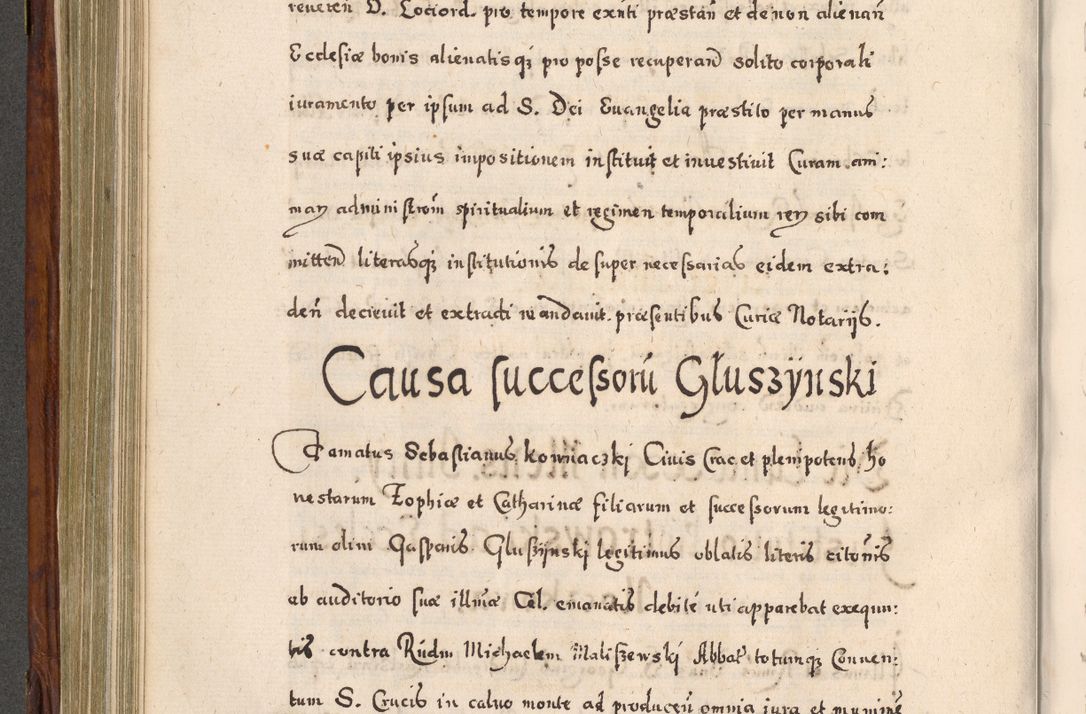 reueren D. Lociord. pro tempore exn̄ti præstan̄ et de non alienan̄
Ecclesiæ bonis alienatisq́ꝫ pro posse recuperan̄d solito corporali
iuramento per ipsum ad S. Dei Euangelia præstito per manus
suæ capiti ipsius impositionem instituit et inuestiuit Curam ani:
maꝝ administrōm̄ spiritualium et regimen temporalium reꝝ sibi com
mitten̄d literasqꝫ institutionis desuper necessarias eidem extra:
den̄ decreuit et extradi mandauit. præsentibus Curiæ Notarijs.
Causa successorū Głuszÿnski
Famatus Sebastianus Kownaczkj Ciuis Crac et plenipotens ho
nestarum Zophiæ et Catharinæ filiarum et successorum legitimo:
rum olim Gasparis Głuszÿnskj legitimus oblatis literis cito͞nis
ab auditorio suæ illmæ Cel. emanatis debitè uti apparebat exequu:
tis contra Rūdm Michaelem Maliszewskj Abbat̄ totumqꝫ Conuen:
tum S. Crucis in caluo monte ad producen̄ omnia iura et munime